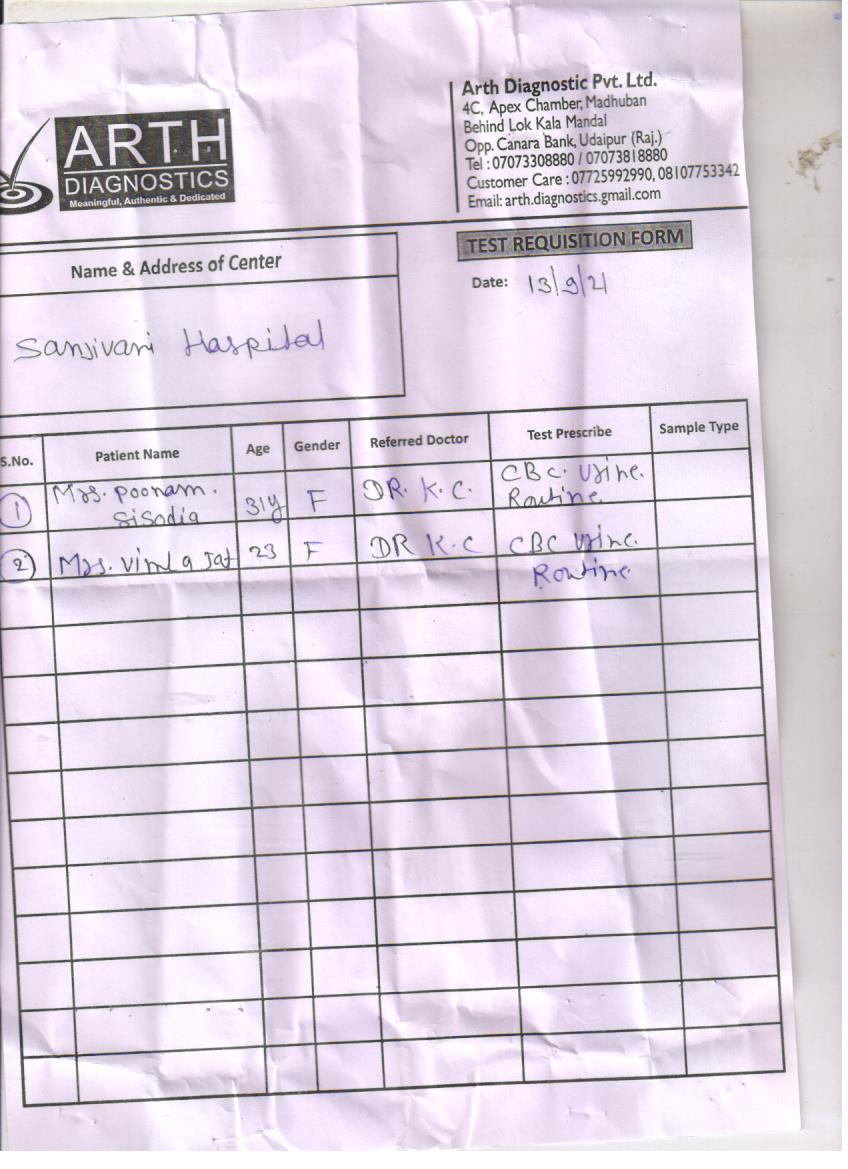 ARTH
DIAGNOSTICS
Meaningful, Authentic & Dedicated
Arth Diagnostic Pvt. Ltd.
4C, Apex Chamber, Madhuban
Behind Lok Kala Mandal
Opp. Canara Bank, Udaipur (Raj.)
Tel : 07073308880 / 07073818880
Customer Care : 07725992990, 08107753342
Email: arth.diagnostics.gmail.com
TEST REQUISITION FORM
Name & Address of Center
Date: 13/9/21
Sanjivani Hospital
S.No. Patient Name Age Gender Referred Doctor Test Prescribe Sample Type
1 Mrs. Poonam. 31y F DR. K. C. CBC. Urine.
Sisodia Routine
2 Mrs. Vimla Jat 23 F DR K.C CBC Urine.
Routine